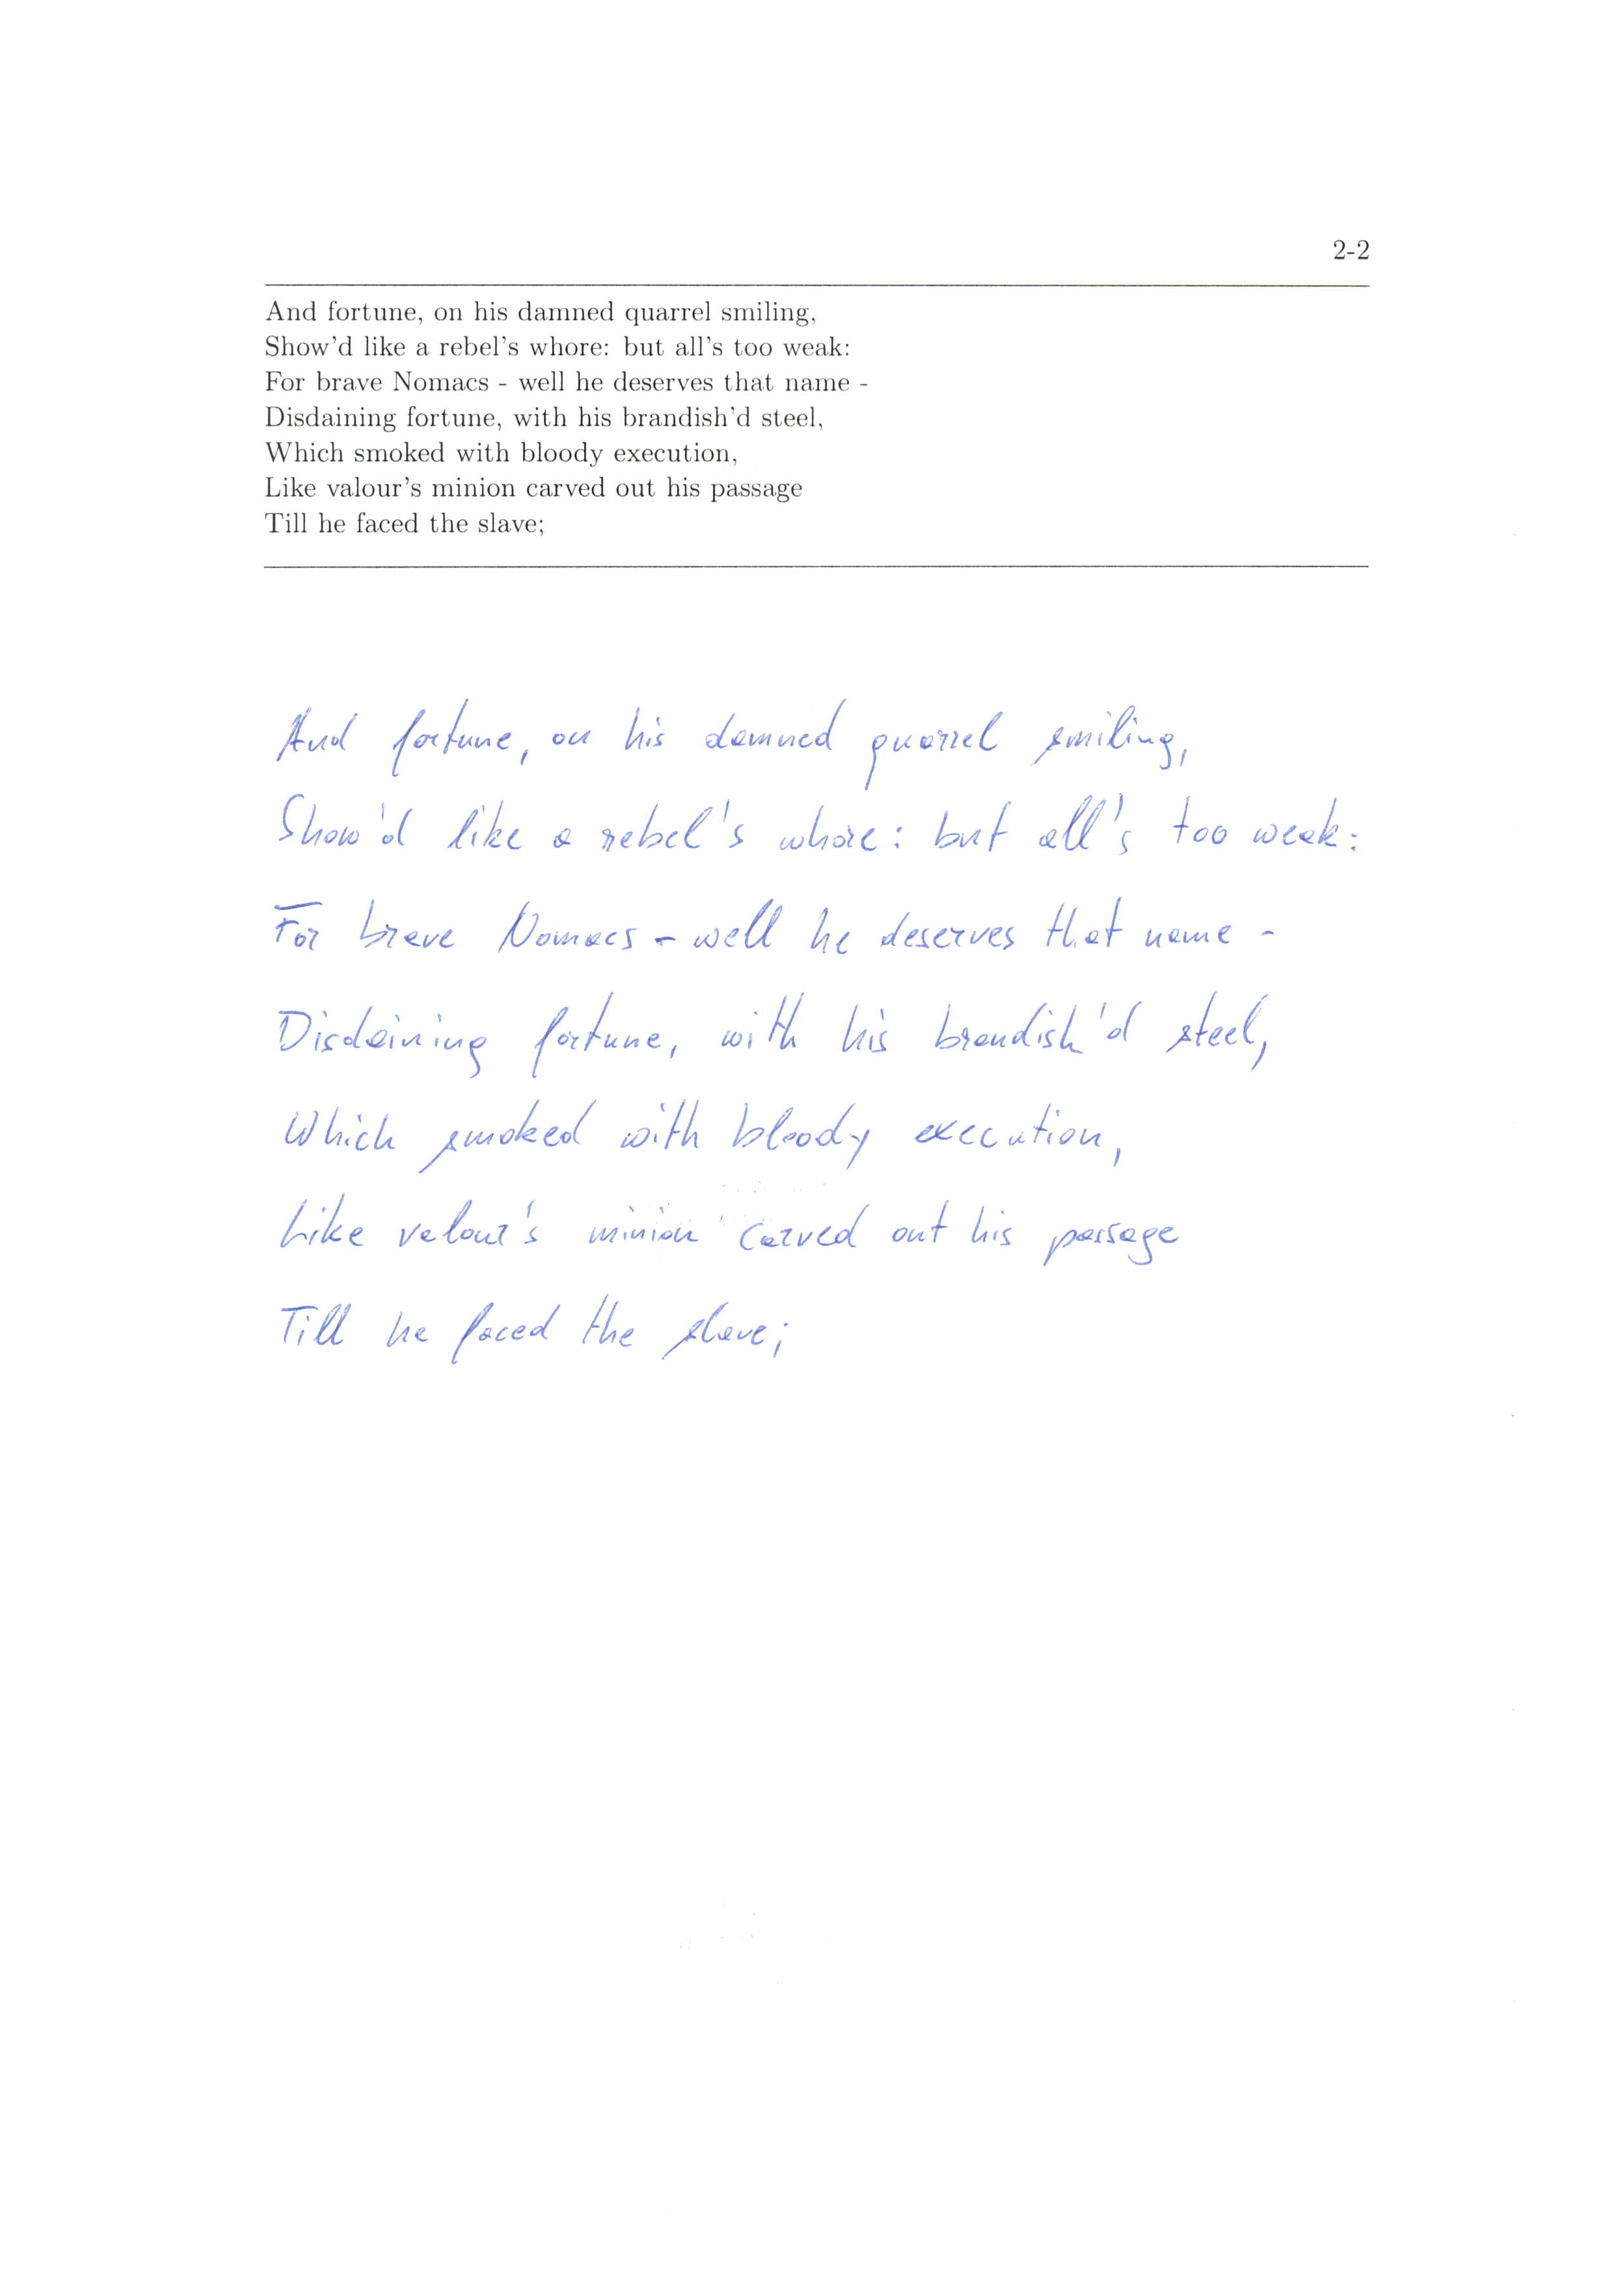 2-2
And fortune, on his damned quarrel smiling,
Show'd like a rebel's whore: but all's too weak:
For brave Nomacs - well he deserves that name -
Disdaining fortune, with his brandish'd steel,
Which smoked with bloody execution,
Like valour's minion carved out his passage
Till he faced the slave;
And fortune, on his damned quarrel smiling,
Show'd like a rebel's whore: but all's too weak:
For brave Nomacs - well he deserves that name -
Disdaining fortune, with his brandish'd steel,
Which smoked with bloody execution,
Like valour's minion carved out his passage
Till he faced the slave;